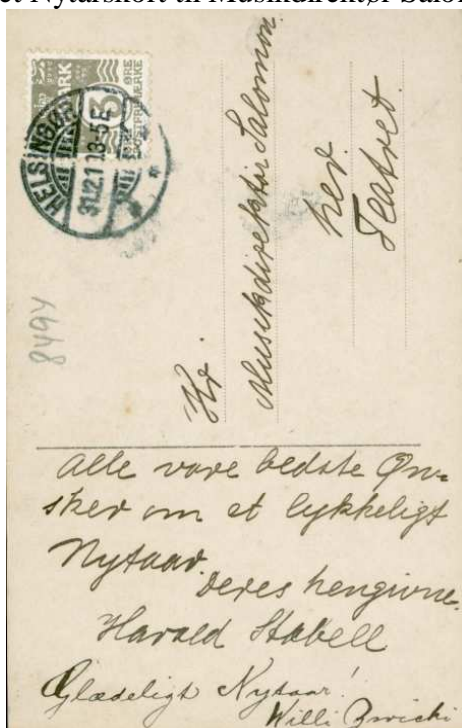 et Nytårskort til Musikdirektør Salo
DANMARK
3
ØRE
POSTFRIMÆRKE
HELSINGØR
31.12.11.3-5E
8494
Hr.
Musikdirektør Salomon
her.
Teatret.
Alle vore bedste Øn-
sker om et lykkeligt
Nytaar.
Deres hengivne.
Harald Stabell
Glædeligt Nytaar!
Willi